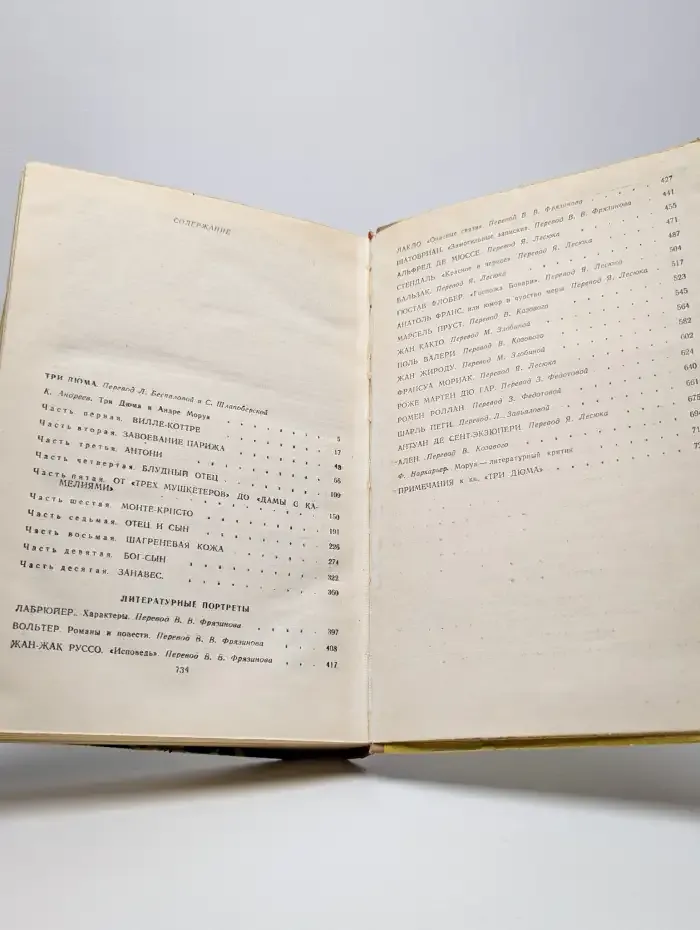 СОДЕРЖАНИЕ
ТРИ ДЮМА. Перевод Л. Беспаловой и С. Шлапоберской
К. Андреев. Три Дюма и Андре Моруа . . . . 5
Часть первая. ВИЛЛЕ-КОТТРЕ . . . . 17
Часть вторая. ЗАВОЕВАНИЕ ПАРИЖА . . . . 48
Часть третья. АНТОНИ . . . . 66
Часть четвертая. БЛУДНЫЙ ОТЕЦ . . . . 109
Часть пятая. ОТ «ТРЕХ МУШКЕТЕРОВ» ДО «ДАМЫ С КА-
МЕЛИЯМИ» . . . . 150
Часть шестая. МОНТЕ-КРИСТО . . . . 191
Часть седьмая. ОТЕЦ И СЫН . . . . 226
Часть восьмая. ШАГРЕНЕВАЯ КОЖА . . . . 274
Часть девятая. БОГ-СЫН . . . . 322
Часть десятая. ЗАНАВЕС. . . . . 360
ЛИТЕРАТУРНЫЕ ПОРТРЕТЫ
ЛАБРЮЙЕР. Характеры. Перевод В. В. Фрязинова . . . . 397
ВОЛЬТЕР. Романы и повести. Перевод В. В. Фрязинова . . . . 408
ЖАН-ЖАК РУССО. «Исповедь». Перевод В. В. Фрязинова . . . 417
734
ЛАКЛО. «Опасные связи». Перевод В. В. Фрязинова . . . . 427
ШАТОБРИАН. «Замогильные записки». Перевод В. В. Фрязинова 441
АЛЬФРЕД ДЕ МЮССЕ. Перевод Я. Лесюка . . . . 455
СТЕНДАЛЬ. «Красное и черное». Перевод Я. Лесюка . . . . 471
БАЛЬЗАК. Перевод Я. Лесюка . . . . 487
ГЮСТАВ ФЛОБЕР. «Госпожа Бовари». Перевод Я. Лесюка . . . . 504
АНАТОЛЬ ФРАНС, или юмор и чувство меры. Перевод Я. Лесюка 517
МАРСЕЛЬ ПРУСТ. Перевод В. Козового . . . . 523
ЖАН КОКТО. Перевод М. Злобиной . . . . 545
ПОЛЬ ВАЛЕРИ. Перевод В. Козового . . . . 564
ЖАН ЖИРОДУ. Перевод М. Злобиной . . . . 582
ФРАНСУА МОРИАК. Перевод Я. Лесюка . . . . 602
РОЖЕ МАРТЕН ДЮ ГАР. Перевод З. Федотовой . . . . 624
РОМЕН РОЛЛАН. Перевод З. Федотовой . . . . 640
ШАРЛЬ ПЕГИ. Перевод Л. Завьяловой . . . . 661
АНТУАН ДЕ СЕНТ-ЭКЗЮПЕРИ. Перевод Я. Лесюка . . . . 675
АЛЕН. Перевод В. Козового . . . .
Ф. Наркирьер. Моруа — литературный критик . . . .
ПРИМЕЧАНИЯ к кн. «ТРИ ДЮМА» . . . .